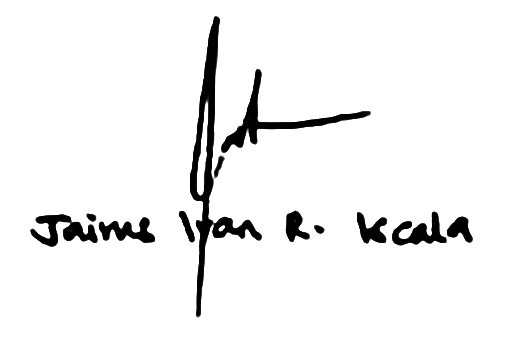 Jaims Ivan R. Kcala